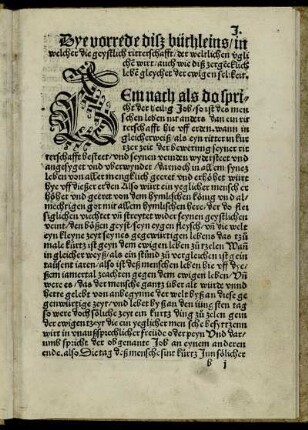 I.
Dye vorrede disz büchleins/in
welcher die geystlich ritterschafft/der weltlichen vgli
chen wirt/auch wie diß zergencklich
leben gleycher der ewigen selikeit.
Dem nach als do spri-
cht der heilig Job/so ist des men
schen leben nit anders dan ein rit
terschafft hie vff erden. wann in
gleicherweiß/als eyn ritter in kur
tzer zeit der bewerung seyner rit
terschafft besteet/vnd seynen veinden wydersteet vnd
angesyget vnd vberwyndet/darnoch in allem synez
leben von aller menglich geeret vnd erhöhet wirt
hye vff dieser erden Also würt ein yeglicher mensch er
höhet vnd geeret von dem hymlischen künig vnd al-
mechtigen got mit allem hymlischen here/der do fleis
siglichen viechtet vnd streytet wider seynen geystlichen
veint/den bösen geyst/seyn eygen fleysch/vnd die welt
eyn kleyne zeyt seynes gegenwürtigen lebens das tzu
male kurtz ist gegen dem ewigen leben tzu tzelen Wan
in gleicher weyß/als ein stund zu vergleichen ist gein
tausent iaren/also ist deß menschen leben hie vff dye/
sem iamertal zuachten gegen dem ewigen leben/Vnd
were es/das der mensche gantz vber alt würde vnnd
herre gelebt von anbegynne der welt byß an diese ge
genwürtige zeyt/vnd lebet byß an den iüngsten tag
so were doch söliche zeyt ein kurtz ding zu zelen gein
der ewigen tzeyt die eyn yeglicher mensche besytzenn
wirt in vnaussprechlicher freüde oder peyn Vnd dar/
umb spricht der obgenante Job an eynem anderen
ende. also. Die tag deß menschen sint kürtz In sölicher
b j